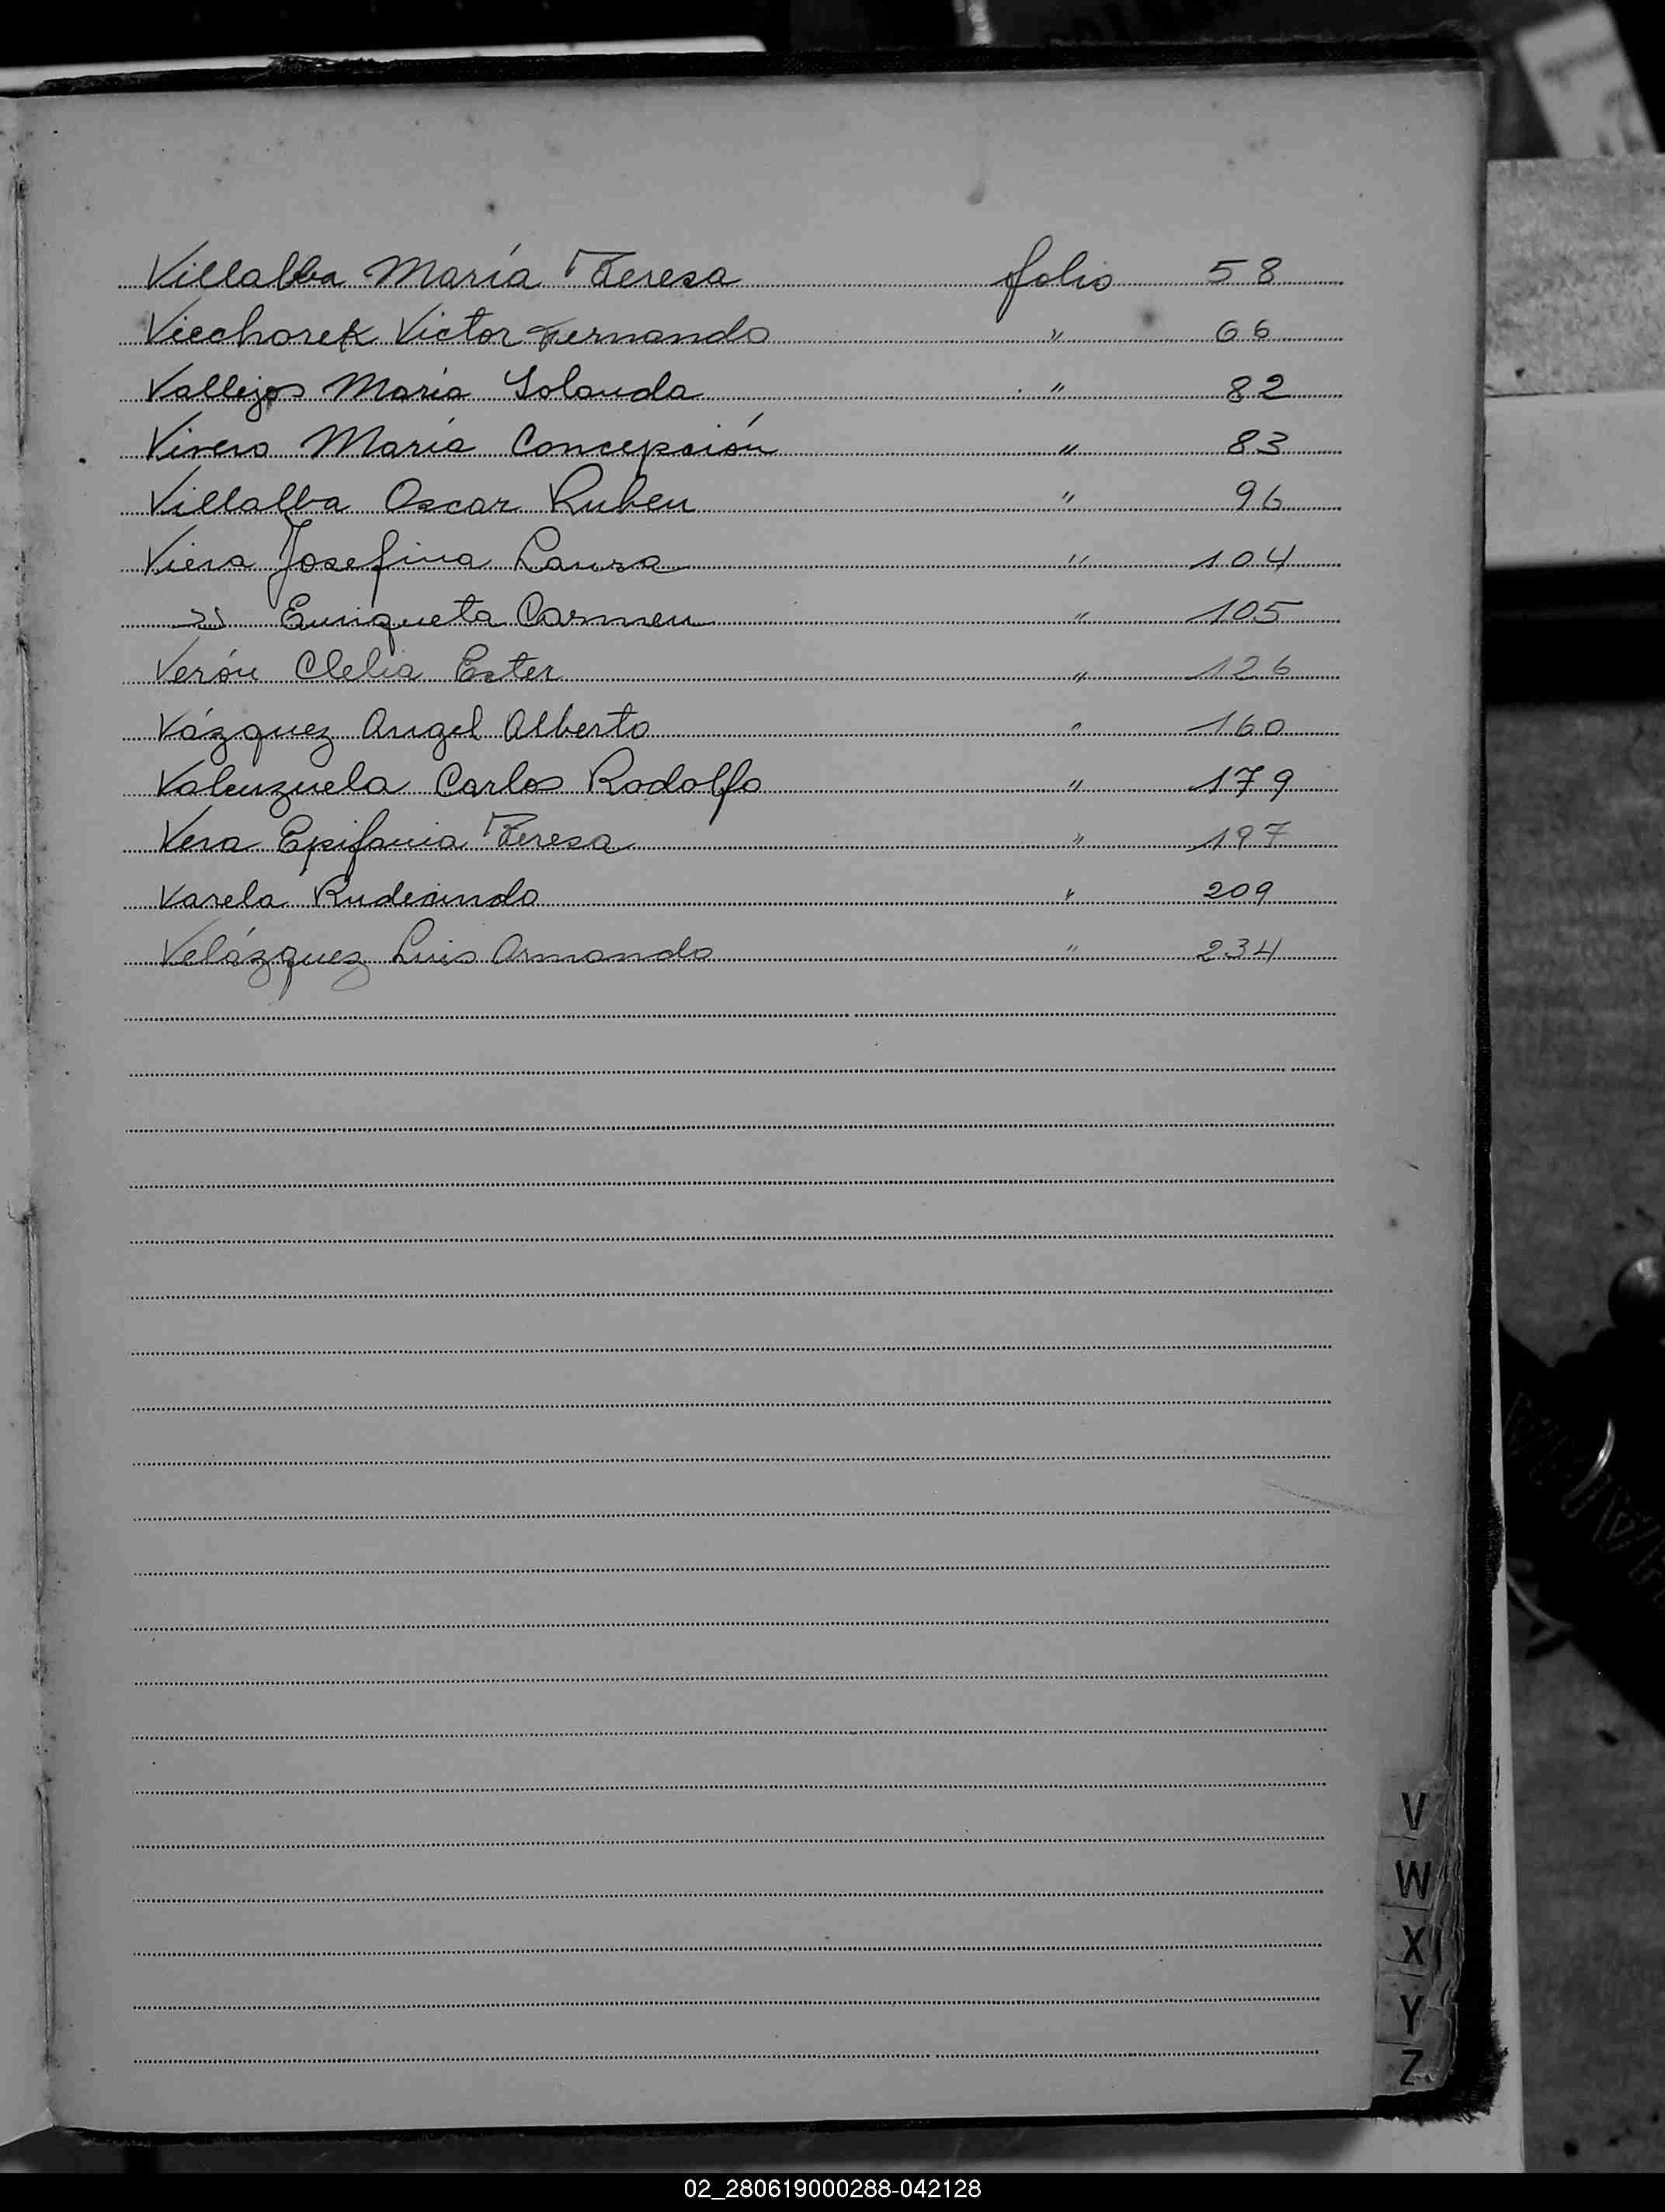 Villalba María Teresa folio 58
Viechorek Victor Fernando " 66
Vallejos María Yolanda " 82
Vivero María Concepción " 83
Villalba Oscar Ruben " 96
Viera Josefina Laura " 104
" Enriqueta Carmen " 105
Verón Clelia Ester " 126
Vázquez Angel Alberto " 160
Valenzuela Carlos Rodolfo " 179
Vera Epifania Teresa " 197
Varela Rudecindo " 209
Velázquez Luis Armando " 234
V
W
X
Y
Z
02_280619000288-042128